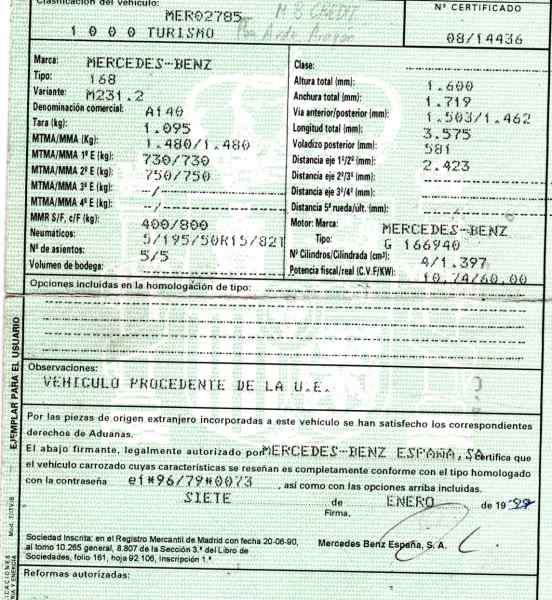 Clasificación del vehículo:
MER02785
1 0 0 0 TURISMO
M B CREDIT
Nº CERTIFICADO
08/14436
Marca: MERCEDES-BENZ
Tipo: 168
Variante: M231.2
Denominación comercial: A140
Tara (kg): 1.095
MTMA/MMA (Kg): 1.480/1.480
MTMA/MMA 1º E (kg): 730/730
MTMA/MMA 2º E (kg): 750/750
MTMA/MMA 3º E (kg): -/-
MTMA/MMA 4º E (kg): -/-
MMR S/F, c/F (kg): 400/800
Neumáticos: 5/195/50R15/82T
Nº de asientos: 5/5
Volumen de bodega:
Clase:
Altura total (mm): 1.600
Anchura total (mm): 1.719
Via anterior/posterior (mm): 1.503/1.462
Longitud total (mm): 3.575
Voladizo posterior (mm): 581
Distancia eje 1º/2º (mm): 2.423
Distancia eje 2º/3º (mm):
Distancia eje 3º/4º (mm):
Distancia 5ª rueda/últ. (mm):
Motor: Marca: MERCEDES-BENZ
Tipo: G 166940
Nº Cilindros/Cilindrada (cm³): 4/1.397
Potencia fiscal/real (C.V.F/KW): 10,74/60,00
Opciones incluidas en la homologación de tipo:
EJEMPLAR PARA EL USUARIO
Observaciones:
VEHICULO PROCEDENTE DE LA U.E.
Por las piezas de origen extranjero incorporadas a este vehículo se han satisfecho los correspondientes
derechos de Aduanas.
El abajo firmante, legalmente autorizado por MERCEDES-BENZ ESPAÑA, SA, certifica que
el vehículo carrozado cuyas características se reseñan es completamente conforme con el tipo homologado
con la contraseña e1*96/79*0073, así como con las opciones arriba incluidas.
SIETE de ENERO de 19
Firma,
Sociedad Inscrita: en el Registro Mercantil de Madrid con fecha 20-06-90,
al tomo 10.265 general, 8.807 de la Sección 3.ª del Libro de
Sociedades, folio 161, hoja 92.106, Inscripción 1.ª
Mercedes Benz España, S. A.
Reformas autorizadas: